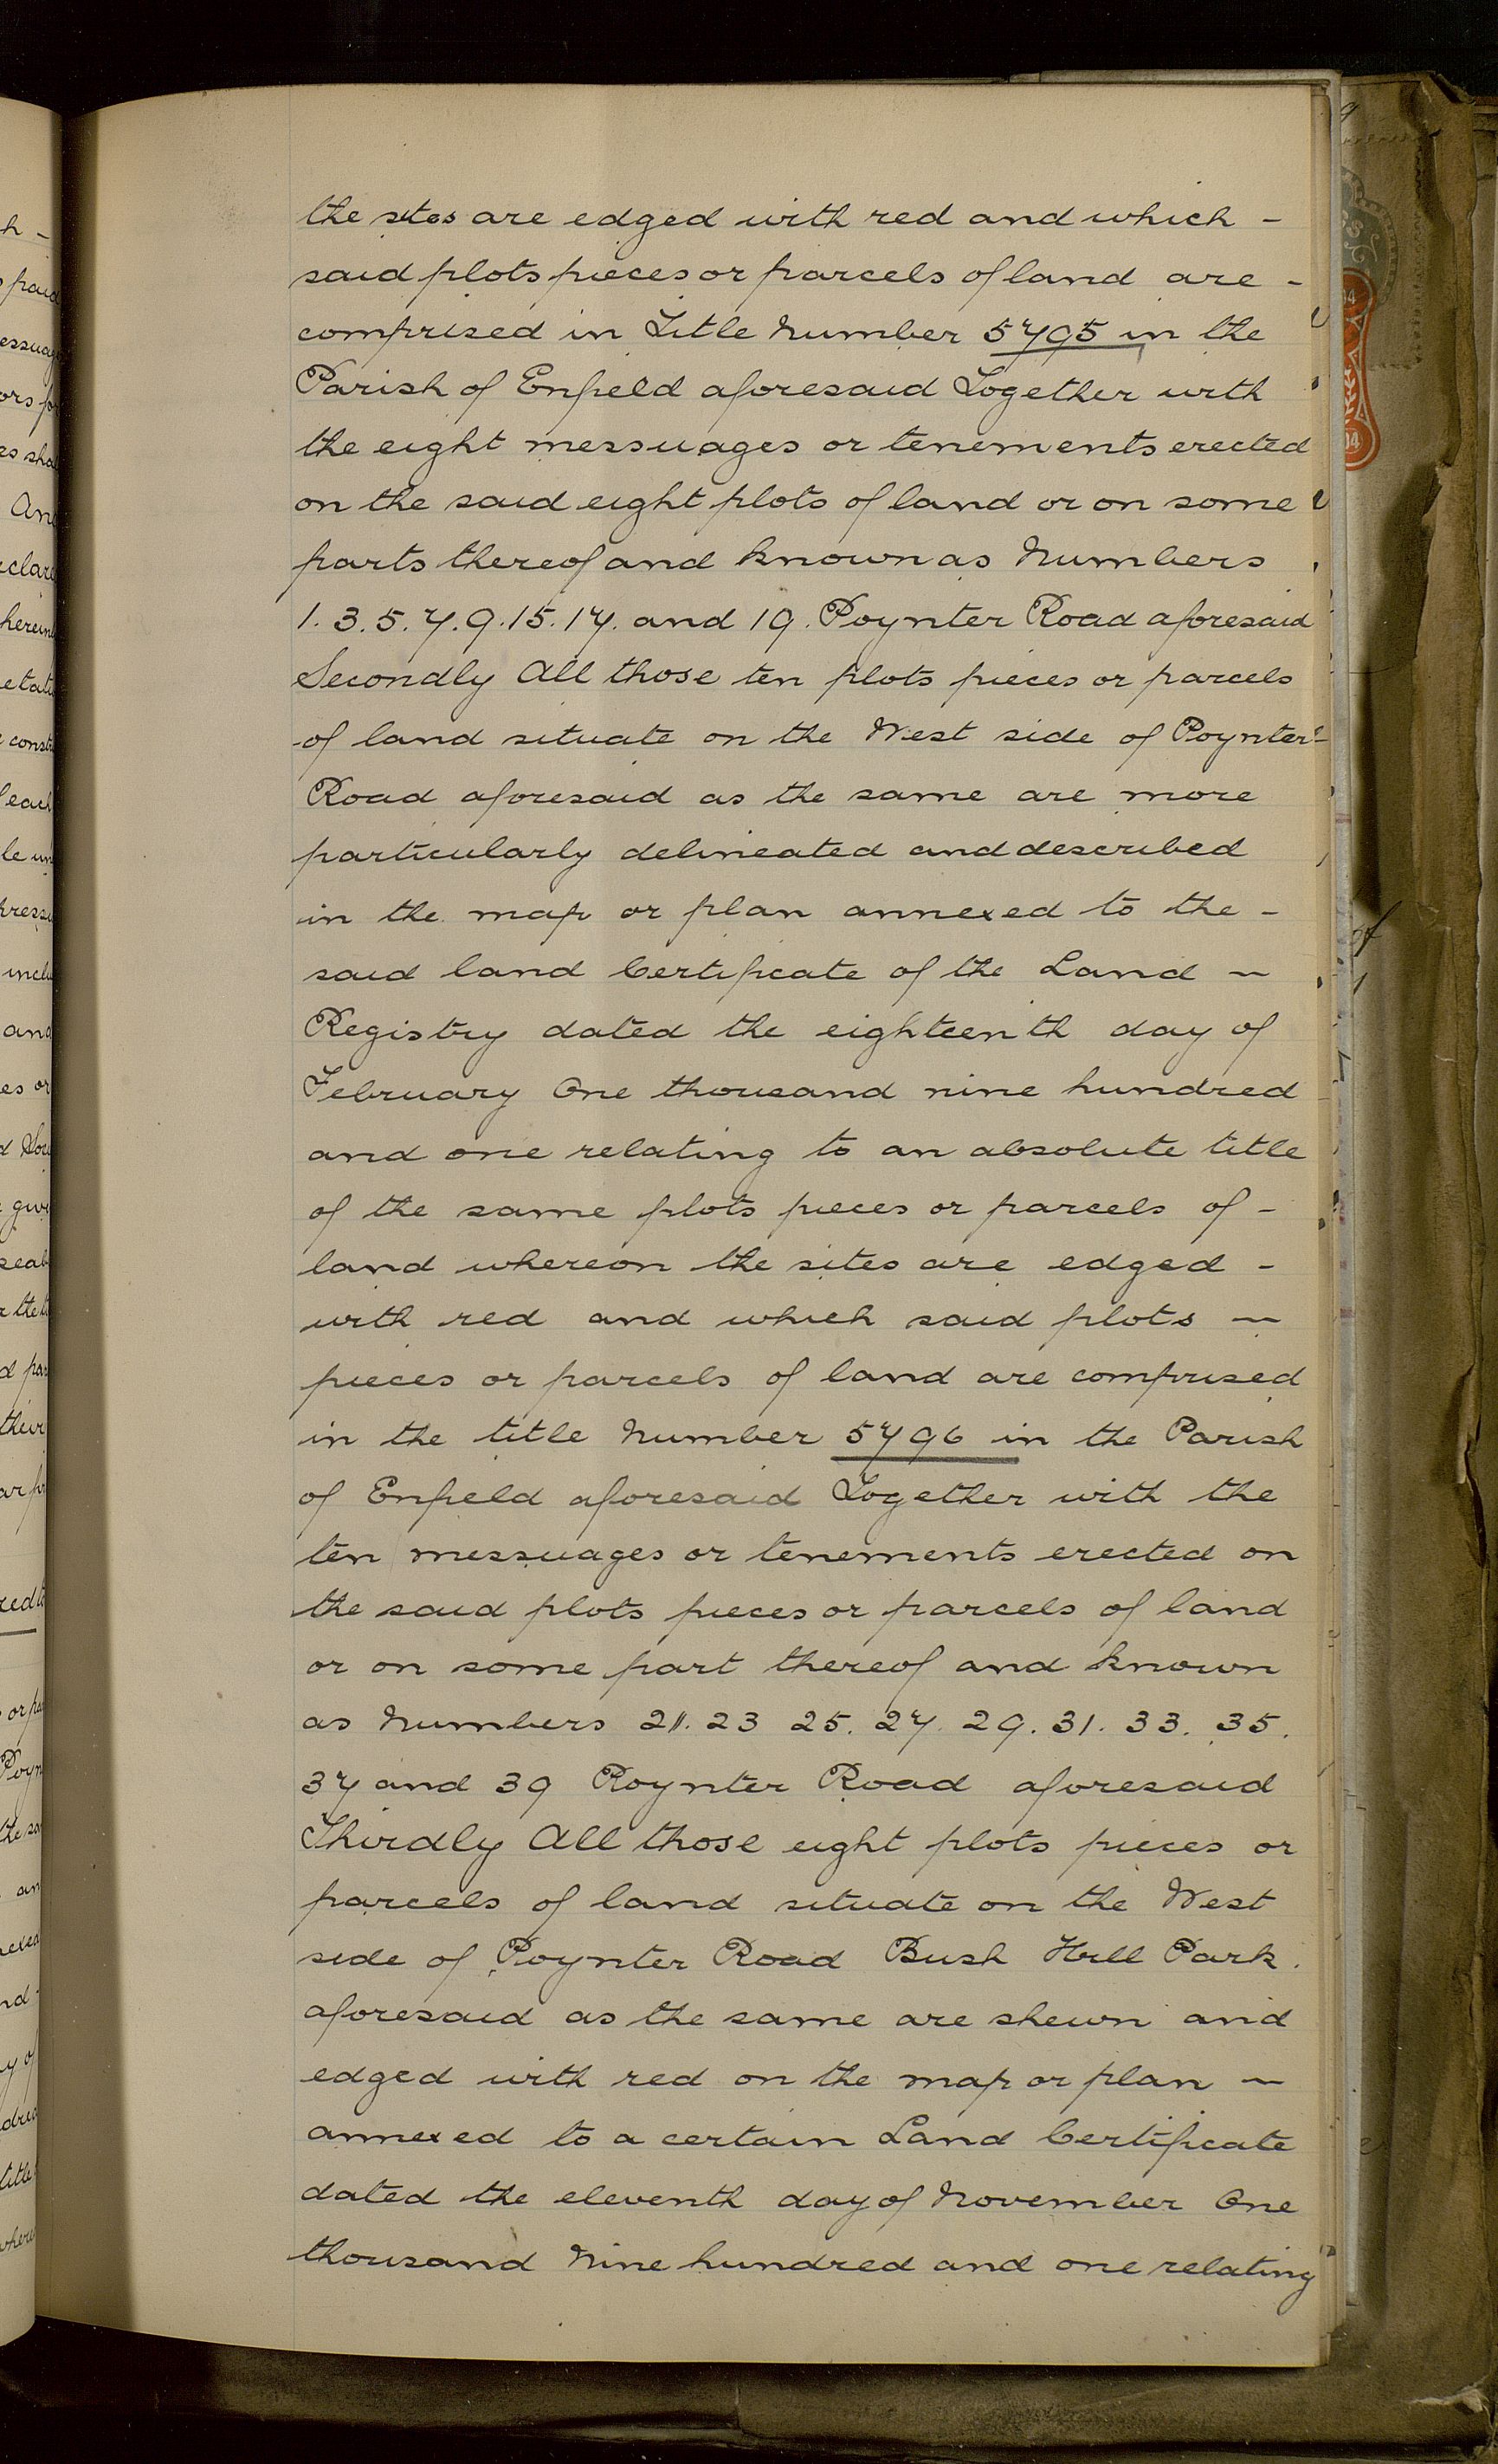 the sites are edged with red and which -
said plots pieces or parcels of land are -
comprised in Title Number 5795 in the
Parish of Enfield aforesaid Together with
the eight messuages or tenements erected
on the said eight plots of land or on some
parts thereof and known as Numbers
1. 3. 5. 7. 9. 15. 17. and 19. Poynter Road aforesaid
Secondly All those ten plots pieces or parcels
of land situate on the West side of Poynter -
Road aforesaid as the same are more
particularly delineated and described
in the map or plan annexed to the -
said land Certificate of the Land ~
Registry dated the eighteenth day of
February One thousand nine hundred
and one relating to an absolute title
of the same plots pieces or parcels of -
land whereon the sites are edged -
with red and which said plots ~
pieces or parcels of land are comprised
in the title Number 5796 in the Parish
of Enfield aforesaid Together with the
ten messuages or tenements erected on
the said plots pieces or parcels of land
or on some part thereof and known
as Numbers 21. 23 25. 27. 29. 31. 33. 35.
37 and 39 Poynter Road aforesaid
Thirdly All those eight plots pieces or
parcels of land situate on the West
side of Poynter Road Bush Hill Park.
aforesaid as the same are shewn and
edged with red on the map or plan ~
annexed to a certain Land Certificate
dated the eleventh day of November One
thousand Nine hundred and one relating